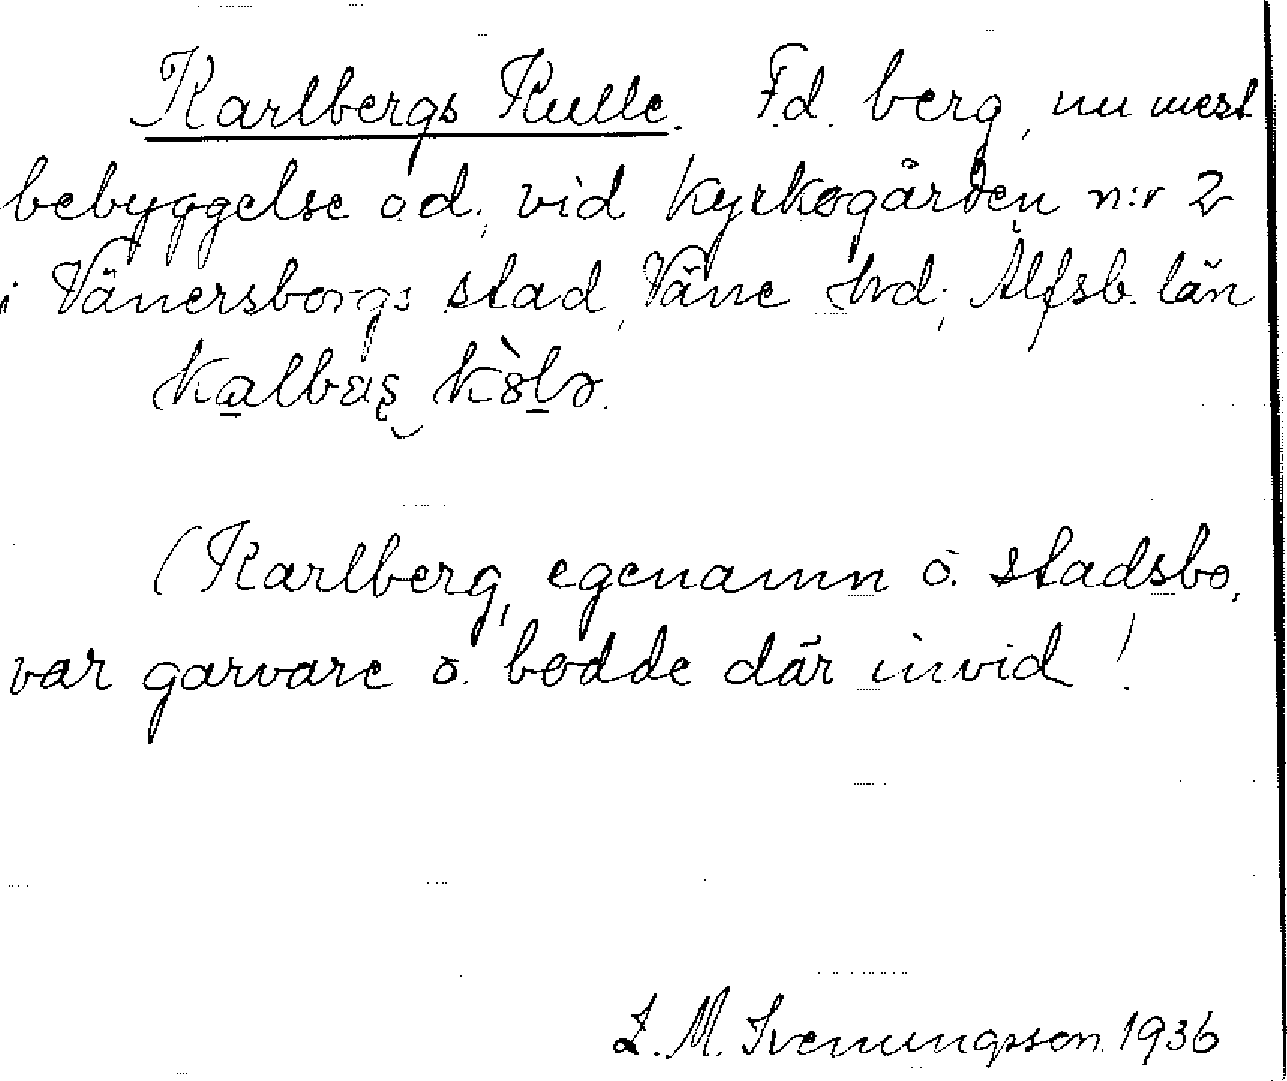 Karlbergs Kulle. F.d. berg, nu mest
bebyggelse o.d., vid kyrkogården n:r 2
i Vänersborgs stad, Väne hrd; Älfsb. län
(Karlberg, egenamn å stadsbo,
var garvare o. bodde där invid!
L. M. Svenungsson 1936